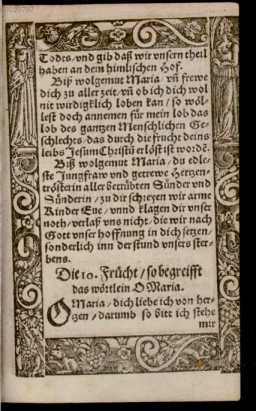 Todts/ vnd gib daß wir vnsern theil
haben an dem himlischen Hof.
Biß wolgemut Maria/ vñ frewe
dich zu aller zeit/ vñ ob ich dich wol
nit wirdigklich loben kan/ so wöl-
lest doch annemen für mein lob das
lob des gantzen Menschlichen Ge-
schlechts/ das durch die frucht deins
leibs Jesum Christū erlöst ist wordē.
Biß wolgemut Maria/ du edle-
ste Jungfraw vnd getrewe Hertzen-
trösterin aller betrübten Sünder vnd
Sünderin/ zu dir schreyen wir arme
Kinder Eue/ vnnd klagen dir vnser
noth/ verlaß vns nicht/ die wir nach
Gott vnser hoffnung in dich setzen/
sonderlich inn der stund vnsers ster-
bens.
Die 10. Frücht/ so begreifft
das wörtlein O Maria.
O Maria/ dich liebe ich von her-
tzen/ darumb so bitt ich stehe
mir